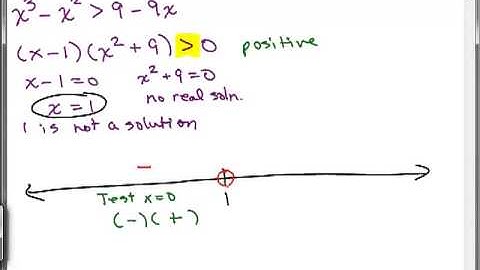 x³ - x² > 9 - 9x
(x-1)(x²+9) > 0 positive
x-1=0 x²+9=0
x=1 no real soln.
1 is not a solution
−
Test x=0 1
(-)(+)